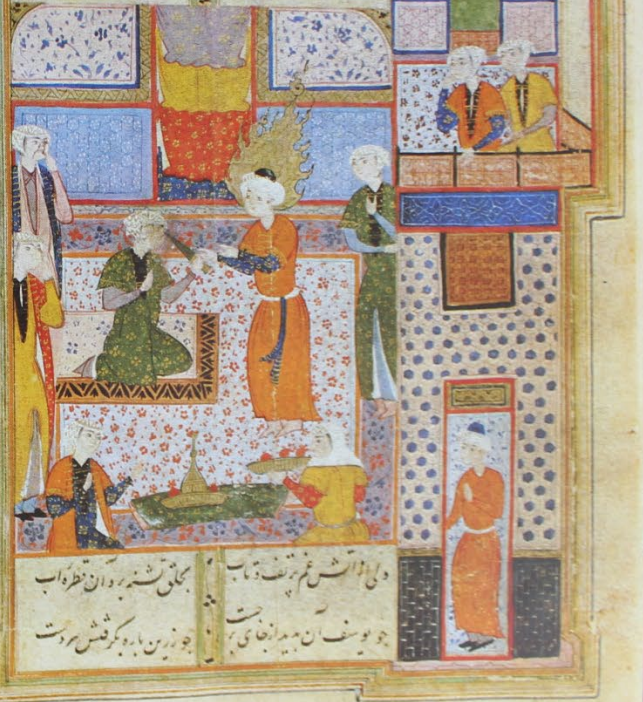 دلی از آتش غم پر تف و تاب بحلقی تشنه برد آن قطره آب
جو یوسف آن بدید از جای برجست جو زرین یاره بگرفتش سر دست